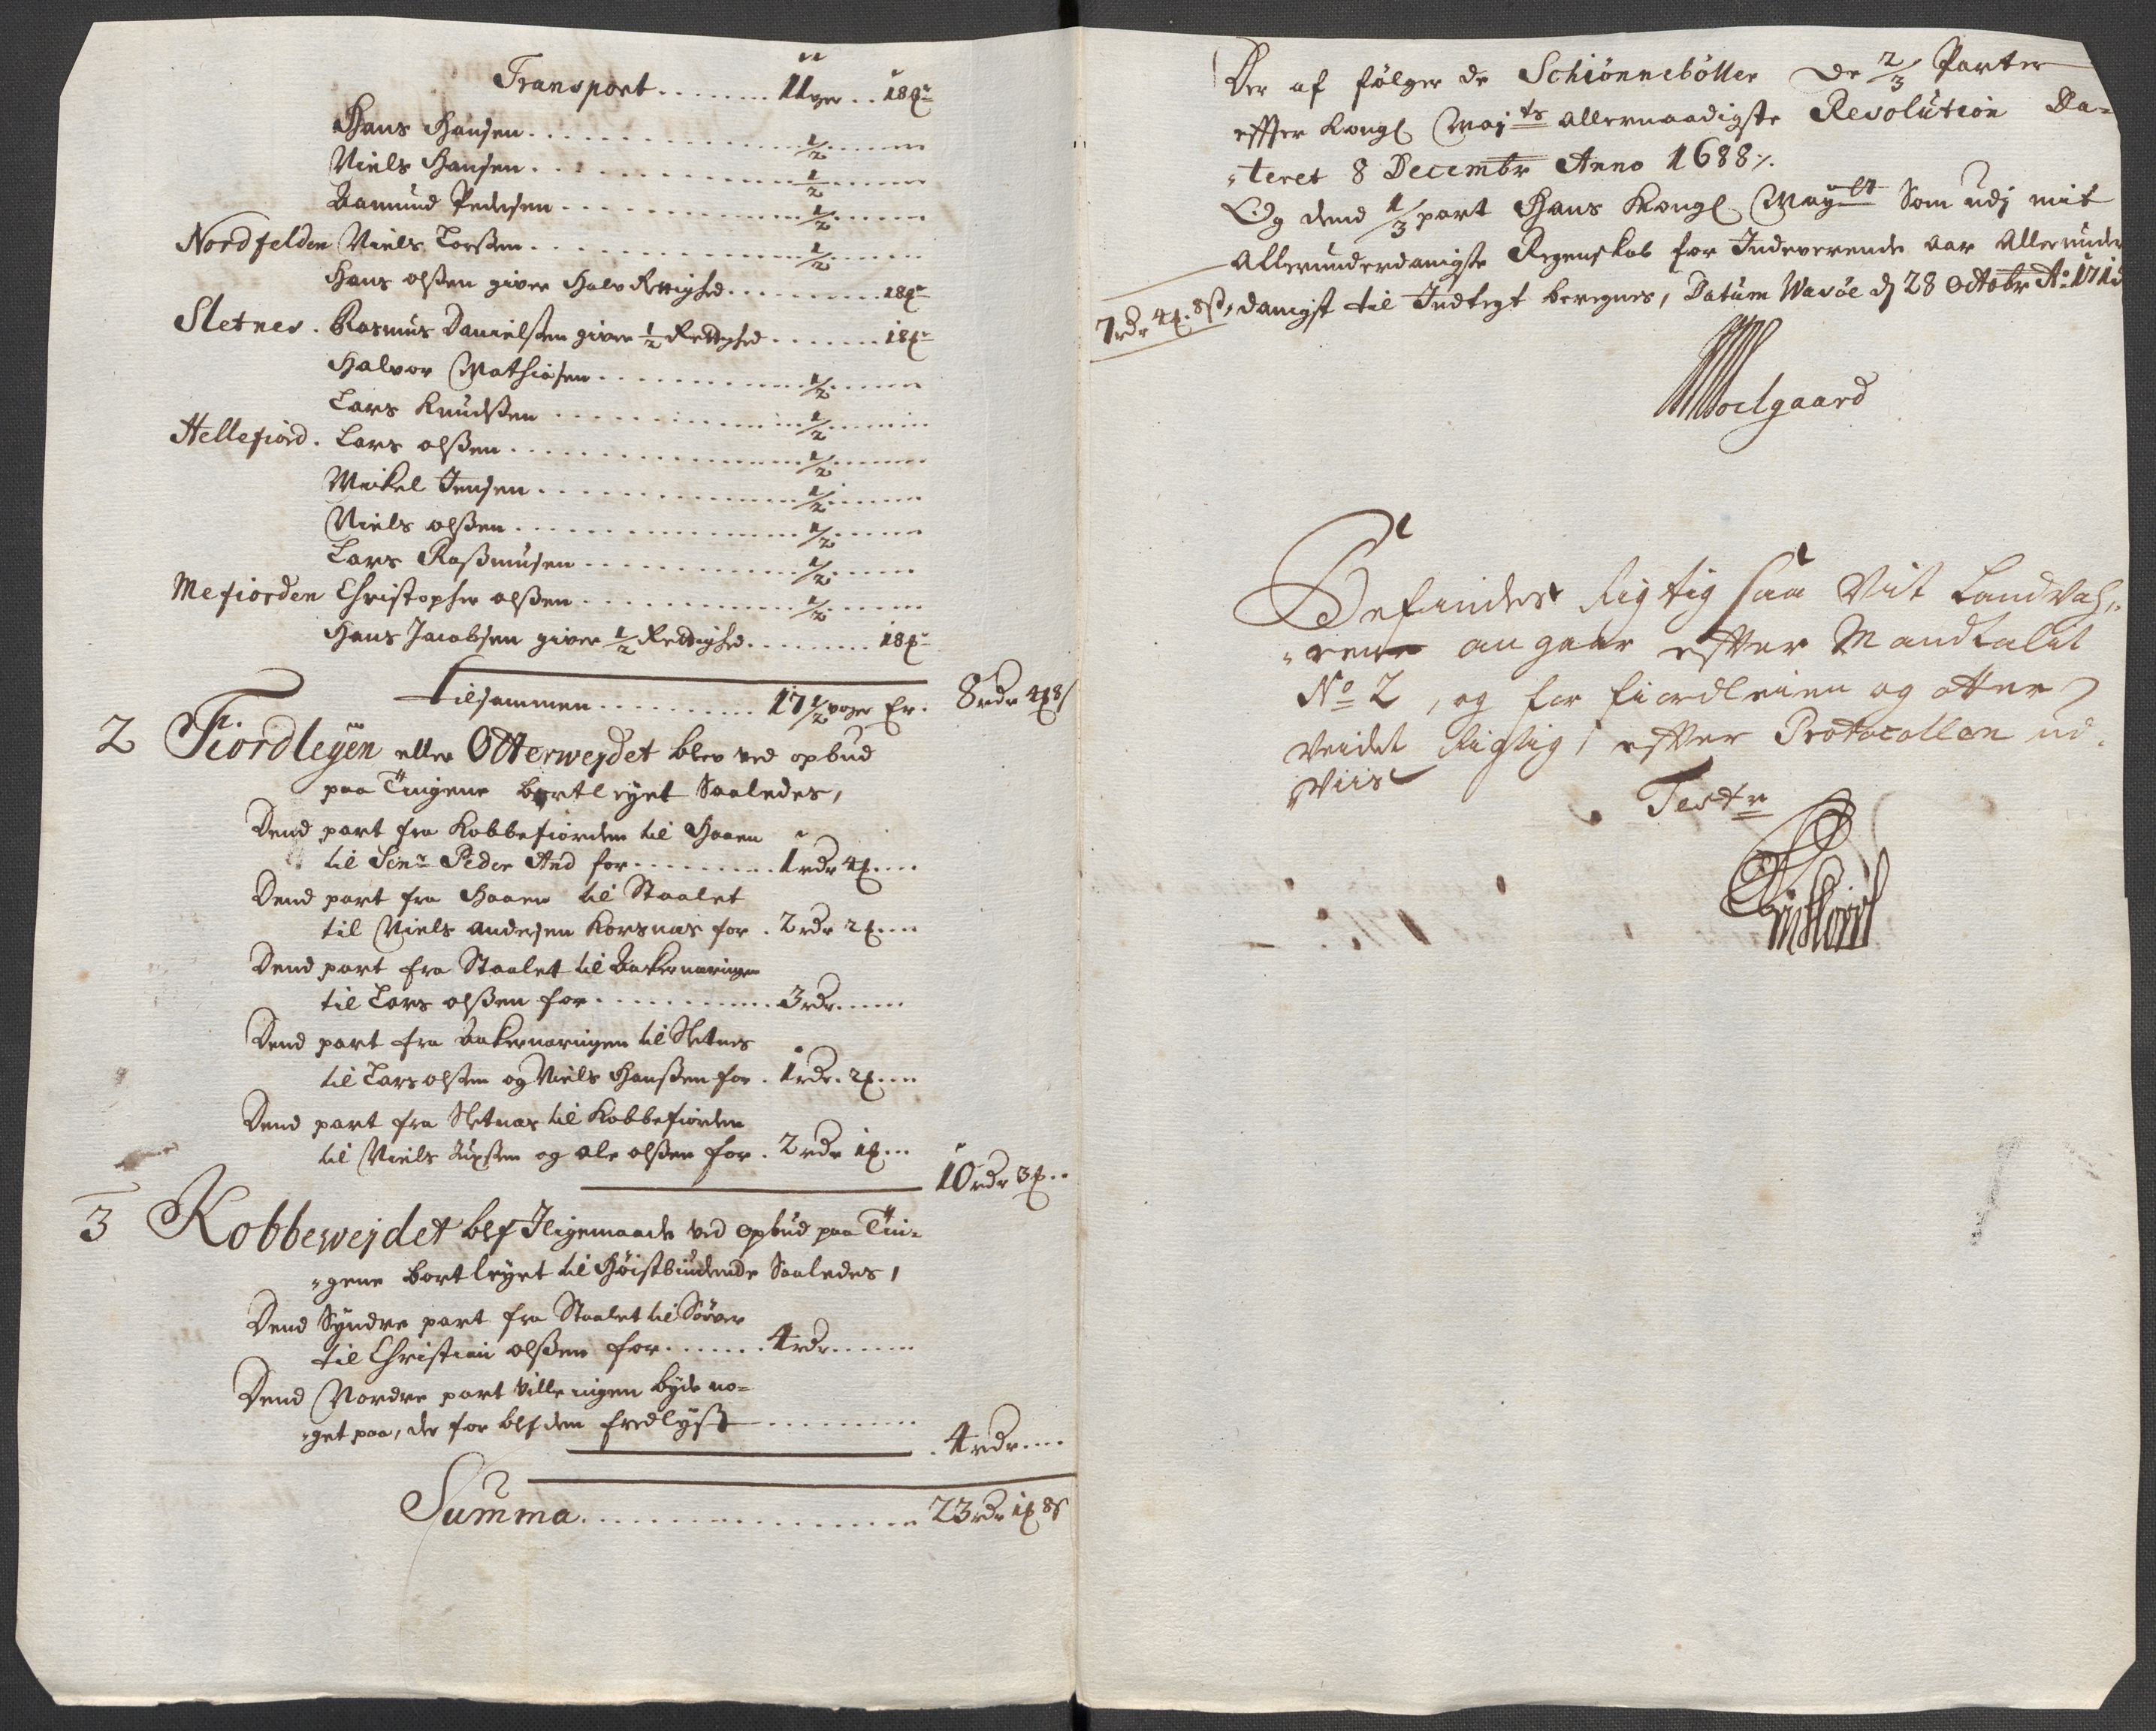 Transport . . . . . . . . 11 wger . . 18 ℔r
Hans Hansen . . . . . . ½ . . . .
Niels Hansen . . . . . . ½ . . . .
Aamund Pedersen . . . . . . ½ . . . .
Nordfelden Niels Larßen . . . . . . ½ . . . .
Hans olßen giver Halv Rettighed . . . . . . 18 ℔r
Sletnes . Rasmus Danielßen giver ½ Rettighed . . . . . . 18 ℔r
Halvor Mathiasen . . . . . . ½ . . . .
Lars Knudßen . . . . . . ½ . . . .
Hellefiord . Lars olßen . . . . . . ½ . . . .
Mickel Jensen . . . . . . ½ . . . .
Niels olßen . . . . . . ½ . . . .
Lars Raßmusen . . . . . . ½ . . . .
Mefiorden Christopher olßen . . . . . . ½ . . . .
Hans Jacobsen giver ½ Rettighed . . . . . . 18 ℔r
Tilsammen . . . . . . 17½ woger Er . 8 rdr 4 ℔ 8 s
2 Fiordleyen eller Otterwejdet blev ved opbud
paa Tingene bortleyet Saaledes,
Dend part fra Kobbefiorden til Haaen
til Sinr Peder And for . . . . . . 1 rdr 4 ℔ . . . .
Dend part fra Haaen til Staalet
til Niels Andersen Korsnæs for . 2 rdr 2 ℔ . . . .
Dend part fra Staalet til Aakernæringen
til Lars olßen for . . . . . . 3 rdr . . . . .
Dend part fra Aakernæringen til Sletnes
til Lars olßen og Niels Hanßen for . 1 rdr . 2 ℔ . . . .
Dend part fra Sletnæs til Kobbefiorden
til Niels og ole olßen for . 2 rdr 1 ℔ . . .
10 rdr 3 ℔ . .
3 Kobbewejdet blef Jligemaade ved opbud paa Tin=
"gene bortleyet til Høistbiudende Saaledes,
Dend Syndre part fra Staalet til Sørøer
til Christian olßen for . . . . . . 4 rdr . . . . . .
Dend Nordre part ville ingen byde no=
"get paa, der for blef den fredlyst . . . . . .
. 4 rdr . . . .
Summa . . . . . . 23 rdr 1 ℔ 8 s
Der af følger de Schiønnebøller de 2/3 Parter
effter Kongl Maj ts allernaadigste Resolution Da=
"teret 8 Decembr Anno 1688 ⁒
Og dend 1/3 part Hans Kongl Mayst Som udj mit
Allerunderdanigste Regenskab for Indeverende aar Allerunder
7 rdr 4 ℔ . 8 s, danigst til Indtegt beregnes, Datum Wasöe dj 28 Octobr Ao 171
Moelgaard
Befindes Rigtig saa Vit Landvah,,
"rene angaar efter Mandtalet
No 2 , og for fiordleien og otter
Veidet Rigtig, efter Protocollen ud,
Viis
Test